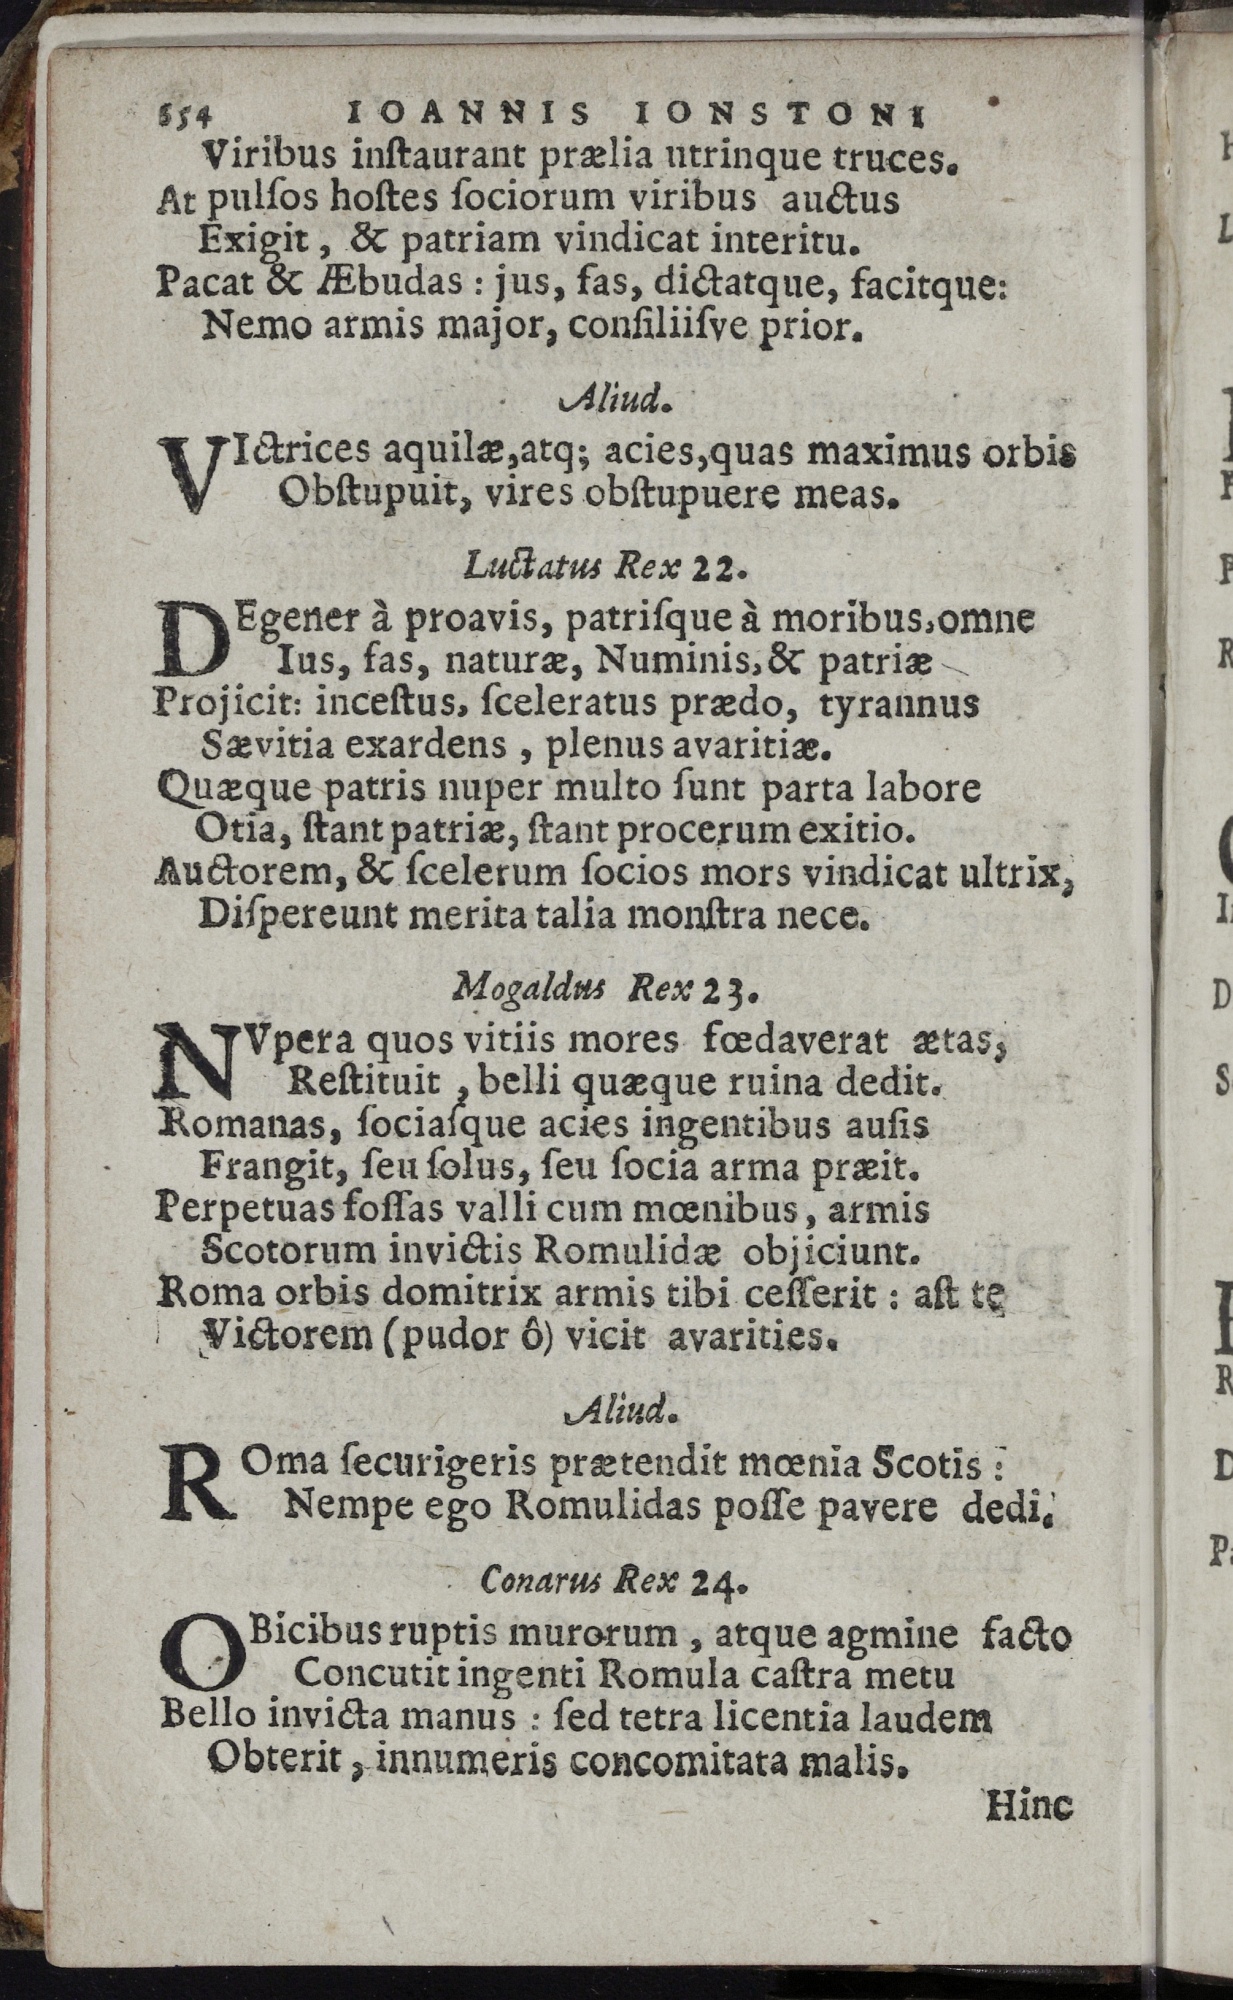 654 IOANNIS IONSTONI
Viribus inſtaurant prælia utrinque truces.
At pulſos hoſtes ſociorum viribus auctus
Exigit, & patriam vindicat interitu.
Pacat & Æbudas : jus, fas, dictatque, facitque:
Nemo armis major, conſiliiſve prior.
Aliud.
VIctrices aquilæ, atq; acies, quas maximus orbis
Obſtupuit, vires obſtupuere meas.
Luctatus Rex 22.
DEgener à proavis, patriſque à moribus, omne
Ius, fas, naturæ, Numinis, & patriæ
Projicit: inceſtus, ſceleratus prædo, tyrannus
Sævitia exardens, plenus avaritiæ.
Quæque patris nuper multo ſunt parta labore
Otia, ſtant patriæ, ſtant procerum exitio.
Auctorem, & ſcelerum ſocios mors vindicat ultrix,
Diſpereunt merita talia monſtra nece.
Mogaldus Rex 23.
NVpera quos vitiis mores fœdaverat ætas,
Reſtituit, belli quæque ruina dedit.
Romanas, ſociaſque acies ingentibus auſis
Frangit, ſeu ſolus, ſeu ſocia arma præit.
Perpetuas foſſas valli cum mœnibus, armis
Scotorum invictis Romulidæ objiciunt.
Roma orbis domitrix armis tibi ceſſerit : aſt te
Victorem (pudor ô) vicit avarities.
Aliud.
ROma ſecurigeris prætendit mœnia Scotis :
Nempe ego Romulidas poſſe pavere dedi.
Conarus Rex 24.
OBicibus ruptis murorum, atque agmine facto
Concutit ingenti Romula caſtra metu
Bello invicta manus : ſed tetra licentia laudem
Obterit, innumeris concomitata malis.
Hinc